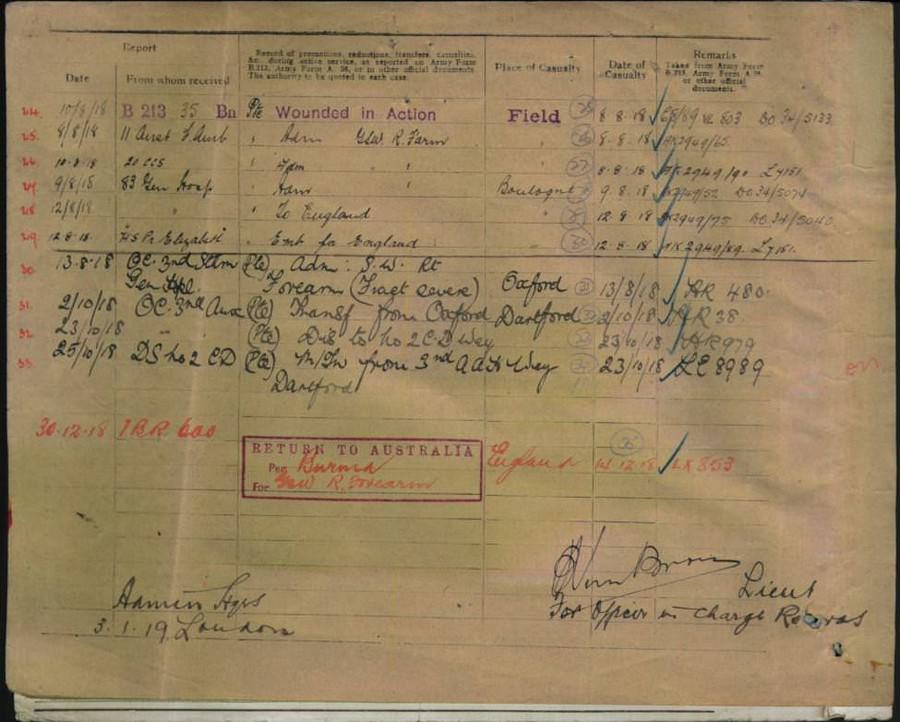 Report
Record of promotions, reductions, transfers, casualties,
&c., during active service, as reported on Army Form
B.213, Army Form A. 36, or in other official documents.
The authority to be quoted in each case.
Remarks
Taken from Army Form
B.213, Army Form A.36,
or other official
documents.
Date From whom received Place of Casualty Date of
Casualty
24. 10/8/18 B 213 35 Bn Pte Wounded in Action Field 8 8 18 803 DO 34/5133
25. 9/8/18 11 Aust F. Amb " Adm GSW R. Farm " 8-8-18 2949/65
26. 10-8-18 20 CCS " Adm " " 8.8.18 2949/90 L7151
27. 9/8/18 83 Gen Hosp " Adm Boulogne 9.8.18 2949/52
28 12/8/18 " " To England " 12 8 18 2949/75 DO 34/5040
29. 12-8-18 HS Pr Elizabeth " Emb for England 12-8-18 2949/89 L7151
30. 13-8-18 OC. 3rd Sthn (Pte) Adm: S.W. Rt
Gen Hpl Forearm (Fract severe) Oxford 13/8/18 AR 480
31. 2/10/18 OC. 3rd Aux (Pte) Transf from Oxford Dartford 2/10/18 AR 38
32. 23/10/18 " (Pte) Dis to No 2 C D Wey 23/10/18 AR 979
33. 25/10/18 DS No 2 CD (Pte) M/In from 3rd A A H Wey 23/10/18 LE 8989
Dartford
30-12-18 600
RETURN TO AUSTRALIA
Per Burma England 12 18 LX 853
For GSW R. Forearm
Lieut
For Officer in Charge Records
Admin Hqrs
3.1.19 London